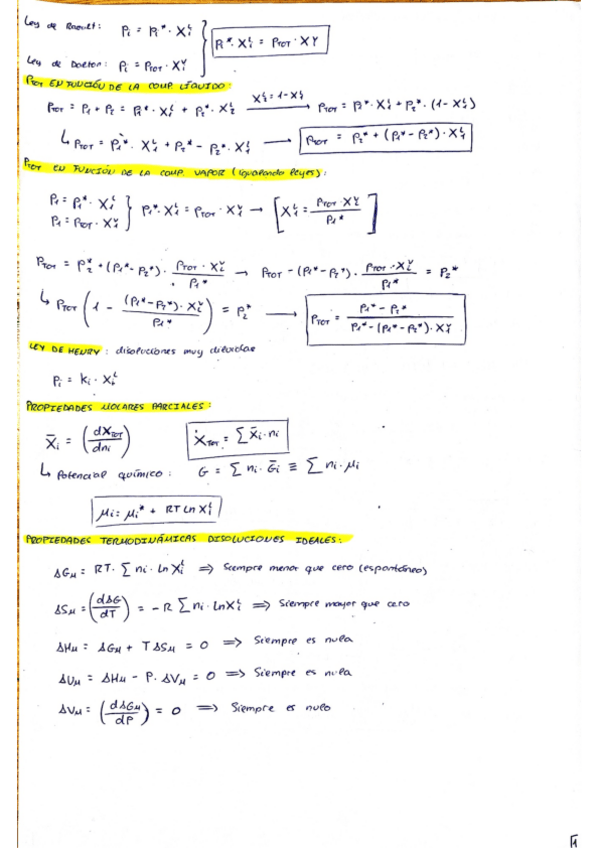 Ley de Raoult: Pi = Pi* · XiL
Pi* · XiL = PTOT · XiV
Ley de Dalton: Pi = PTOT · XiV
PTOT EN FUNCIÓN DE LA COMP. LÍQUIDO:
PTOT = P1 + P2 = P1* · X1L + P2* · X2L X2L = 1 - X1L → PTOT = P1* · X1L + P2* · (1 - X1L)
↳ PTOT = P1* · X1L + P2* - P2* · X1L → PTOT = P2* + (P1* - P2*) · X1L
PTOT EN FUNCIÓN DE LA COMP. VAPOR (igualando leyes):
P1 = P1* · X1L
P1 = PTOT · X1V } P1* · X1L = PTOT · X1V → [X1L = PTOT · X1V / P1*]
PTOT = P2* + (P1* - P2*) · PTOT · X1V / P1* → PTOT - (P1* - P2*) · PTOT · X1V / P1* = P2*
↳ PTOT (1 - (P1* - P2*) · X1V / P1*) = P2* → PTOT = P1* - P2* / P1* - (P1* - P2*) · X1V
LEY DE HENRY: disoluciones muy diluidas
Pi = ki · XiL
PROPIEDADES MOLARES PARCIALES:
X̄i = (dXTOT / dni) XTOT = ∑ X̄i · ni
↳ Potencial químico: G = ∑ ni · Ḡi ≡ ∑ ni · μi
μi = μi* + RT Ln XiL
PROPIEDADES TERMODINÁMICAS DISOLUCIONES IDEALES:
ΔGM = RT · ∑ ni · Ln XiL ⇒ Siempre menor que cero (espontáneo)
ΔSM = (dΔG / dT) = - R ∑ ni · Ln XiL ⇒ Siempre mayor que cero
ΔHM = ΔGM + TΔSM = 0 ⇒ Siempre es nula
ΔUM = ΔHM - P · ΔVM = 0 ⇒ Siempre es nula
ΔVM = (dΔGM / dP) = 0 ⇒ Siempre es nulo
1